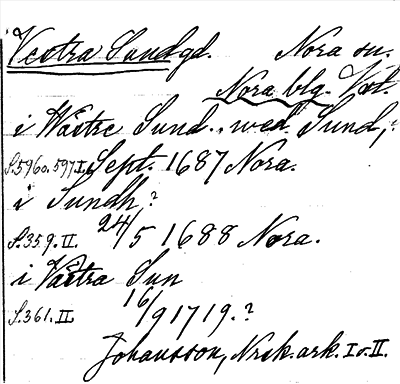 Vestra Sundgd. Nora sn.
Nora blg. Vstl.
i Wästre Sund, wed Sund,?
S. 596 o. 597 I. Sept. 1687 Nora.
i Sundh,?
S. 359. II. 24/5 1688 Nora.
i Västra Sun
S. 361. II. 16/9 1719.?
Johansson, Nrsk. ark. I o. II.